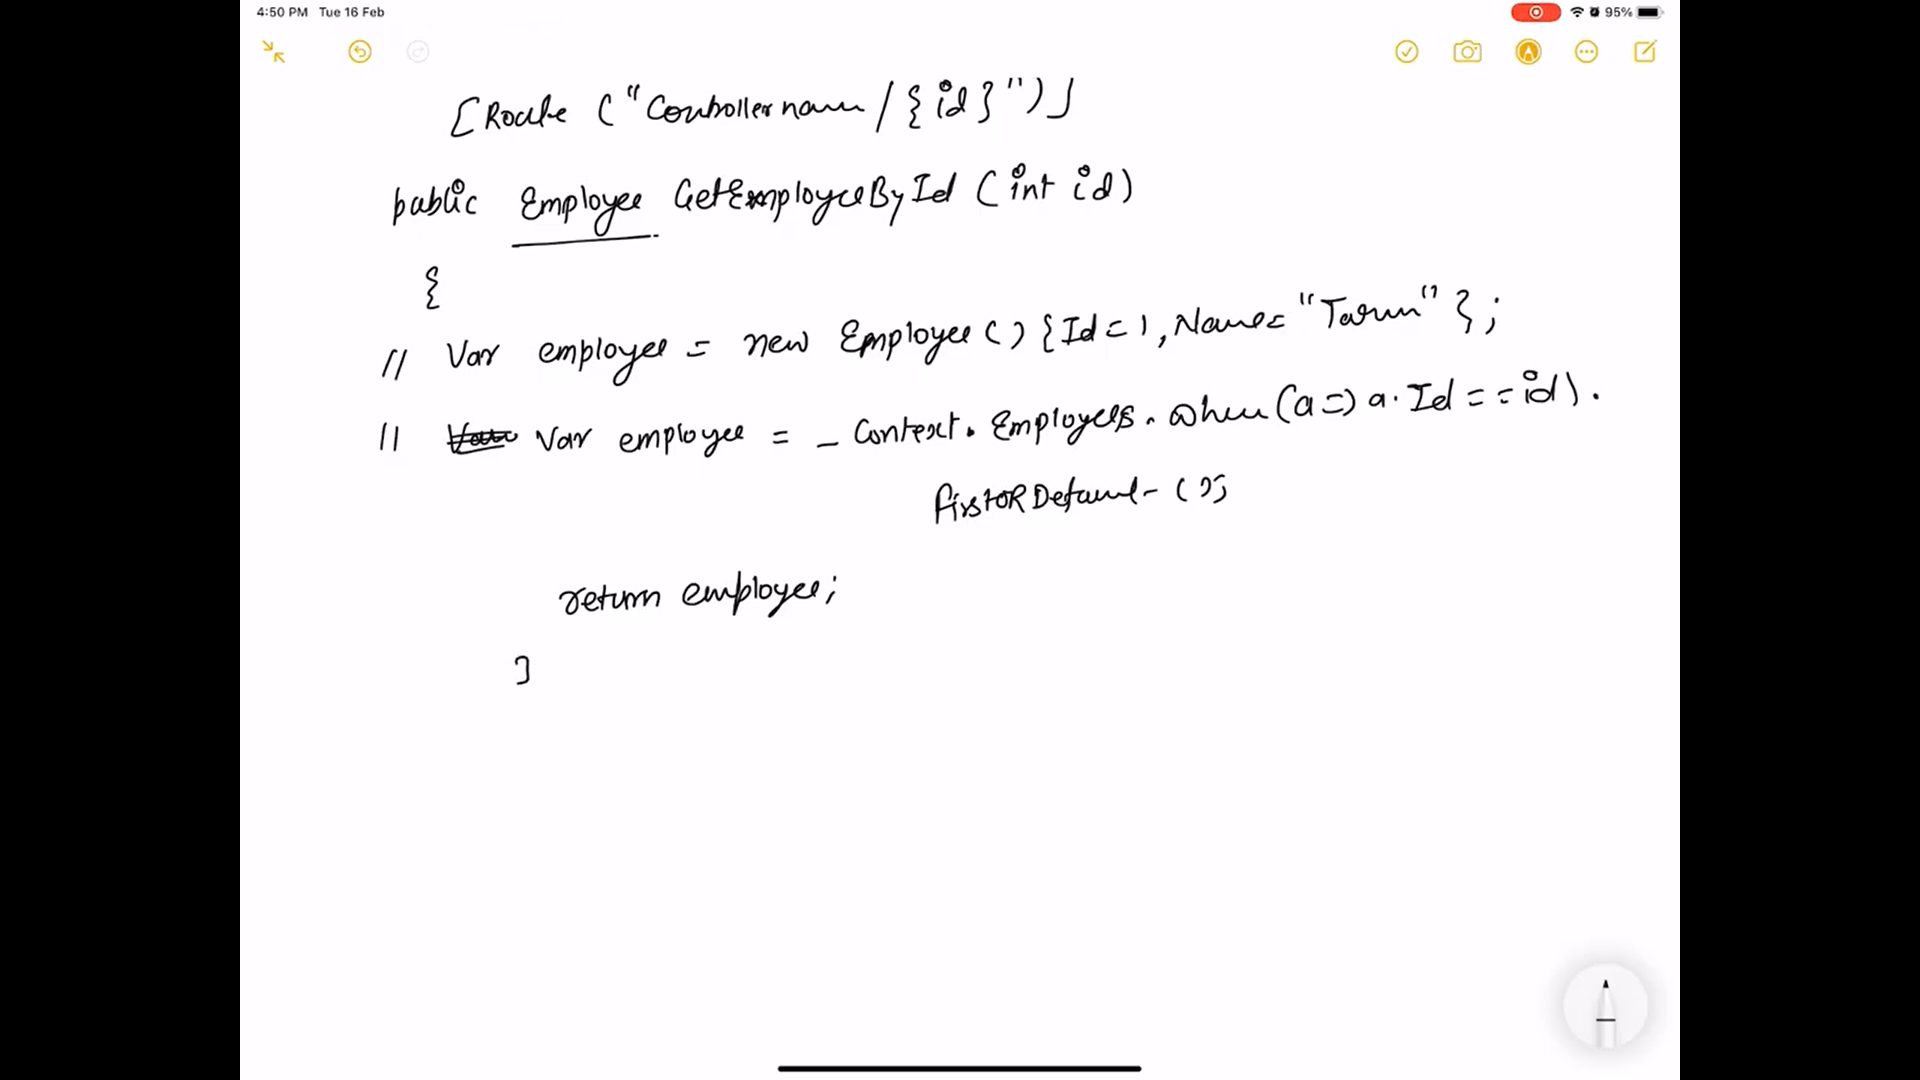 4:50 PM Tue 16 Feb
95%
[Route ("Controllername/{id}")]
public Employee GetEmployeeById (int id)
{
// Var employee = new Employee() {Id=1, Name="Tarun"};
// Var employee = _Context.Employees.when(a=> a.Id==id).
firstORDefault();
return employee;
}